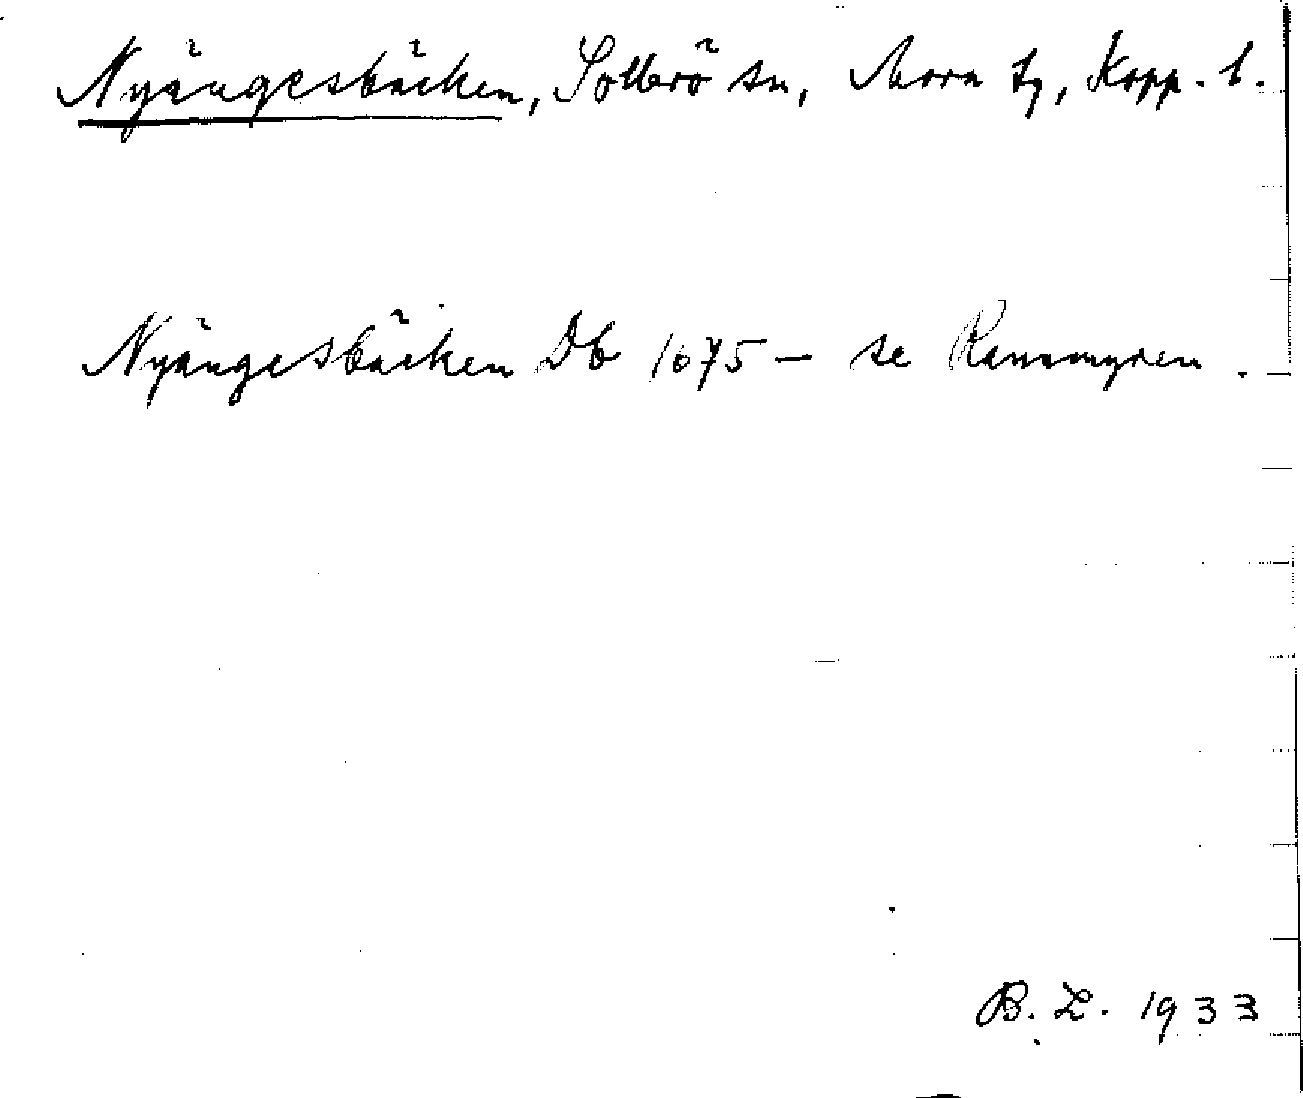 Nyängesbäcken, Sollerö sn, Mora tg, Kopp. l.
Nyängesbäcken Db 1675 – se Rensmyren.
B. L. 1933